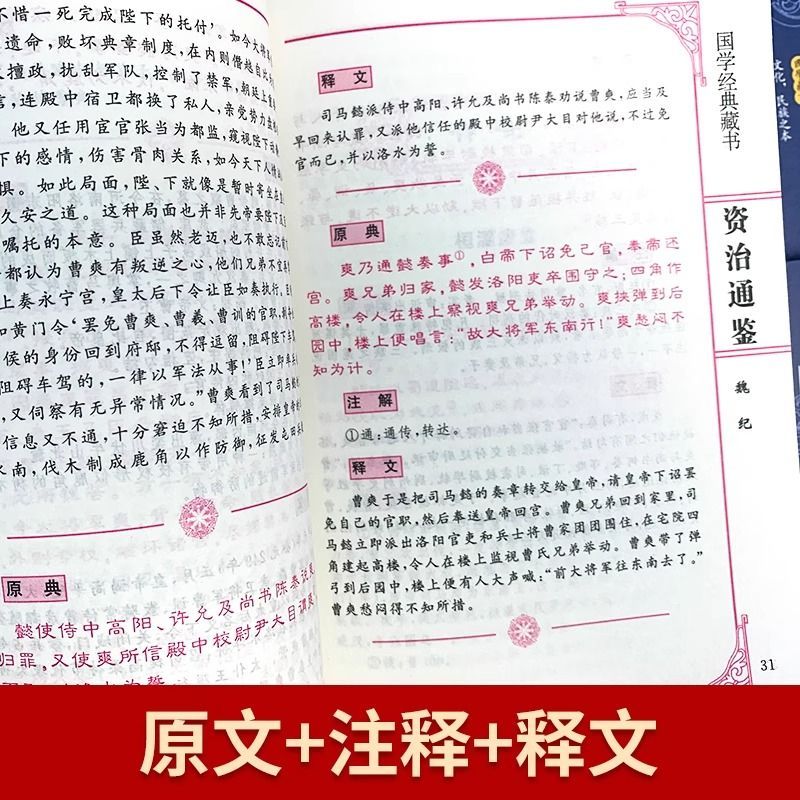 不惜一死完成陛下的托付’。如今大将
遗命，败坏典章制度，在内则僭越自
擅政，扰乱军队，控制了禁军，朝廷上
，连殿中宿卫都换了私人，亲党势力
他又任用宦官张当为都监，窥视陛下
下的感情，伤害骨肉关系，如今天下人
惧。如此局面，陛、下就像是暂时寄坐在
久安之道。这种局面也并非先帝要陛下
嘱托的本意。臣虽然老迈，也不敢忘记
都认为曹爽有叛逆之心，他们兄弟不宜
上奏永宁宫，皇太后下令让臣如奏执行，臣
和黄门令‘罢免曹爽、曹羲、曹训的官职，
侯的身份回到府邸，不得逗留，阻碍陛下
阻碍车驾的，一律以军法从事！’臣立即
，又伺察有无异常情况。”曹爽看到了司马懿
信息又不通，十分窘迫不知所措，安排皇帝
水南，伐木制成鹿角以作防御，征发屯田
原 典
懿使侍中高阳、许允及尚书陈泰说
归罪，又使爽所信殿中校尉尹大目谓
释 文
司马懿派侍中高阳、许允及尚书陈泰劝说曹爽，应当及
早回来认罪，又派他信任的殿中校尉尹大目对他说，不过免
官而已，并以洛水为誓。
原 典
爽乃通懿奏事①，白帝下诏免己官，奉帝还
宫。爽兄弟归家，懿发洛阳吏卒围守之；四角作
高楼，令人在楼上察视爽兄弟举动。爽挟弹到后
园中，楼上便唱言：“故大将军东南行！”爽愁闷不
知为计。
注 解
①通：通传，转达。
释 文
曹爽于是把司马懿的奏章转交给皇帝，请皇帝下诏罢
免自己的官职，然后奉送皇帝回宫。曹爽兄弟回到家里，司
马懿立即派出洛阳官吏和兵士将曹家团团围住，在宅院四
角建起高楼，令人在楼上监视曹氏兄弟举动。曹爽带了弹
弓到后园中，楼上便有人大声喊：“前大将军往东南去了。”
曹爽愁闷得不知所措。
国学经典藏书
资治通鉴
魏 纪
31
文化，民族之本
原文+注释+释文